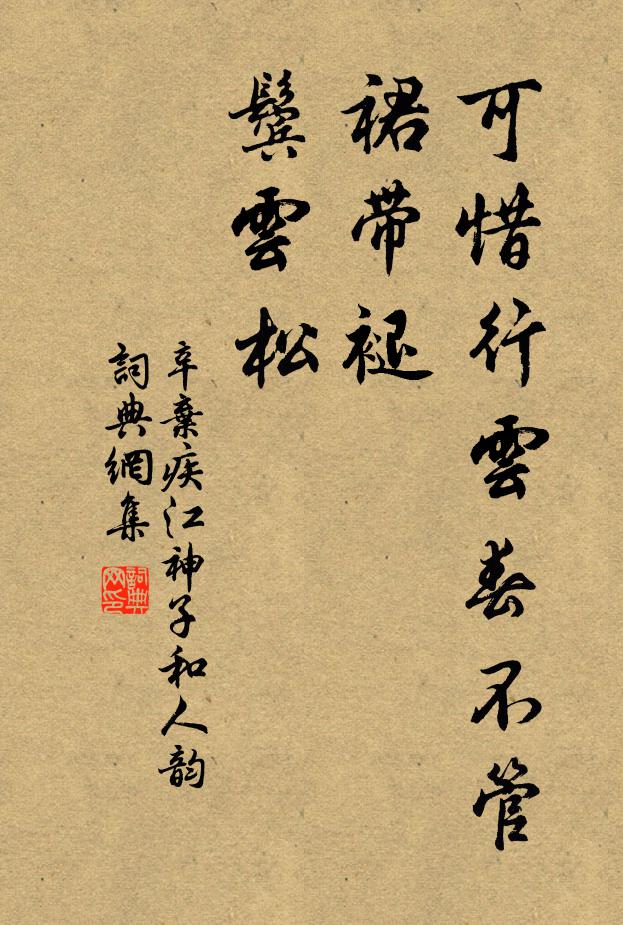 可惜行雲春不管
裙带褪
鬓雲松
辛棄疾江神子和人韵
詞典網集
詞典网印